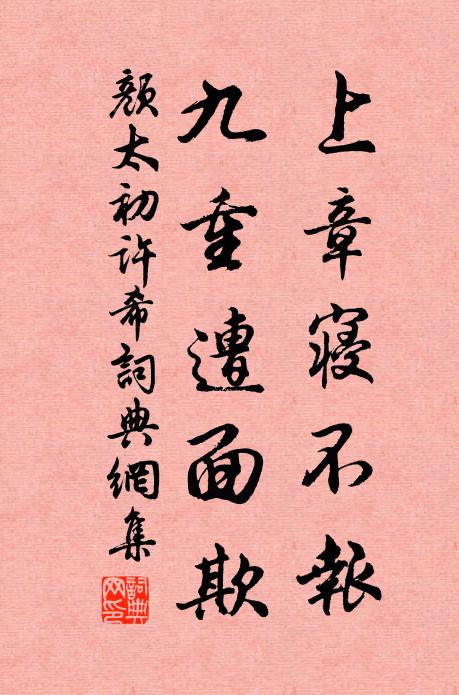 上章寝不報
九重遭面欺
顏太初許希詞典網集
詞典網印